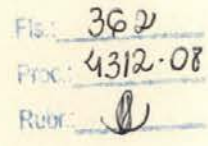 Fls.: 362
Proc.: 4312-08
Rubr.: